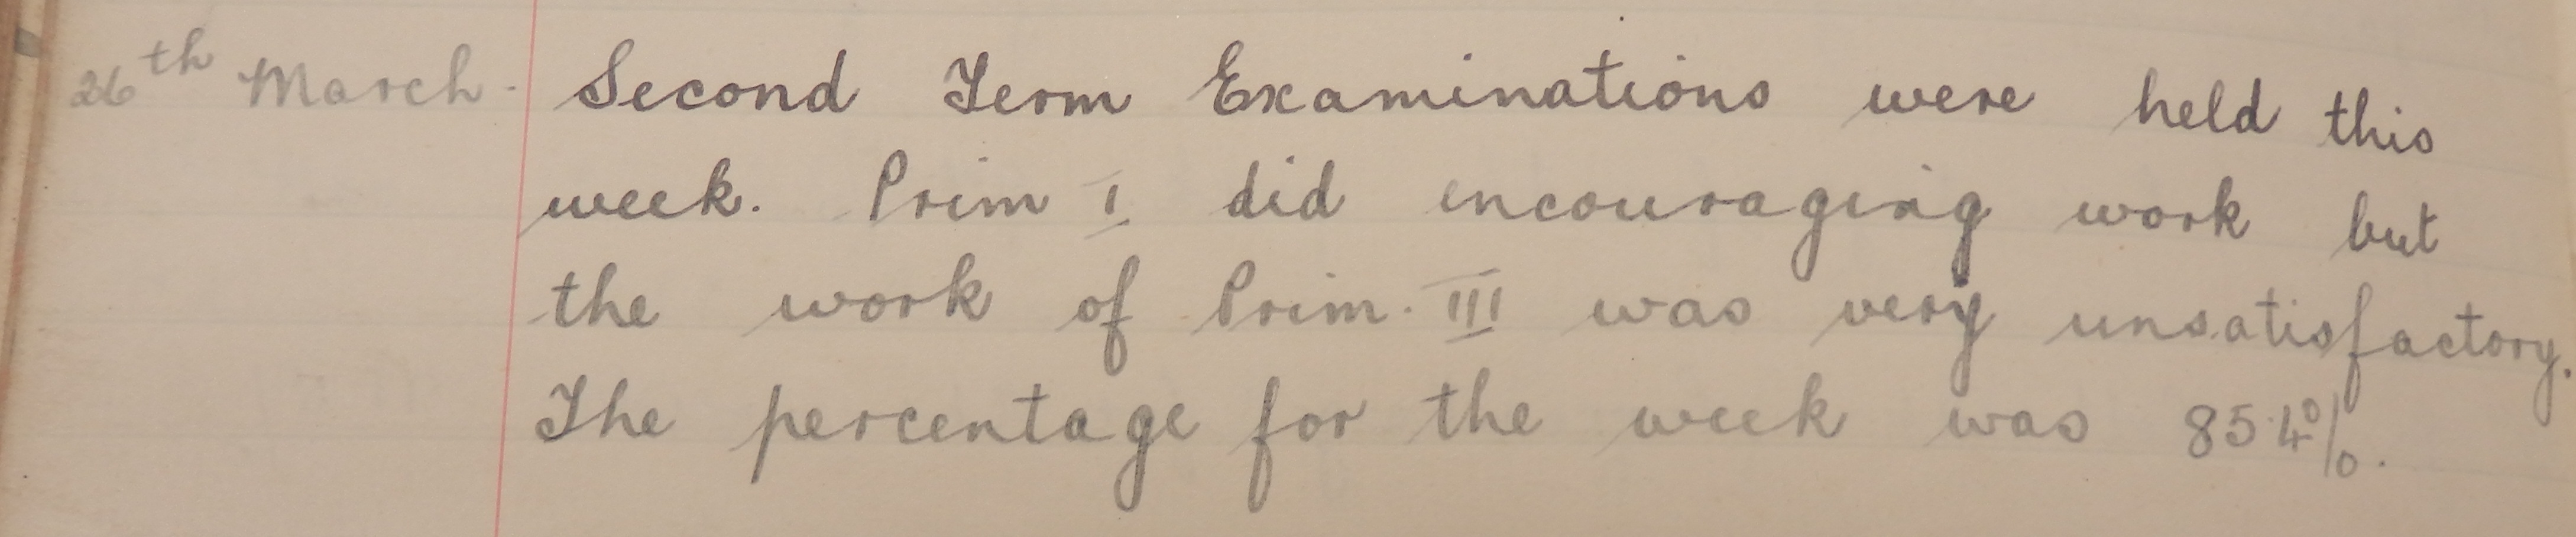 26th March. Second Term Examinations were held this
week. Prim I did encouraging work but
the work of Prim. III was very unsatisfactory.
The percentage for the week was 85.4%.